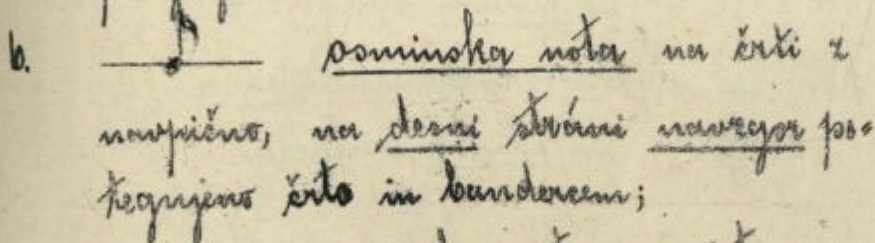 b. osminska nota na črti z
navpično, na desni strani navzgor po-
tegnjeno črto in bandercem;